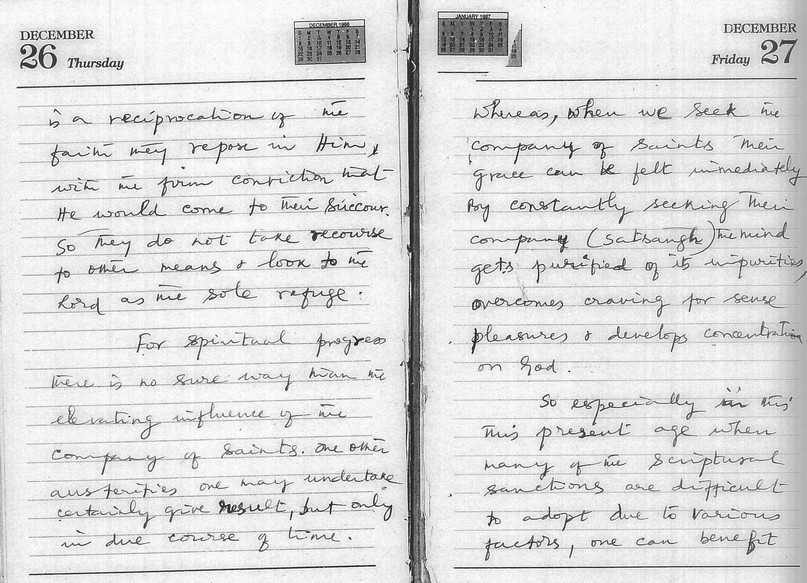 DECEMBER
26 Thursday
DECEMBER 1996
is a reciprocation of the
faith they repose in Him,
with the firm conviction that
He would come to their succour.
So they do not take recourse
to other means & look to the
Lord as the sole refuge.
For spiritual progress
there is no sure way than the
elevating influence of the
company of saints. The other
austerities one may undertake
certainly give result, but only
in due course of time.
JANUARY 1997
DECEMBER
Friday 27
Whereas, when we seek the
company of saints their
grace can be felt immediately
By constantly seeking their
company (satsangh) the mind
gets purified of its impurities,
overcomes craving for sense
pleasures & develops concentration
on God.
So especially in this
this present age when
many of the scriptural
sanctions are difficult
to adopt due to various
factors, one can benefit